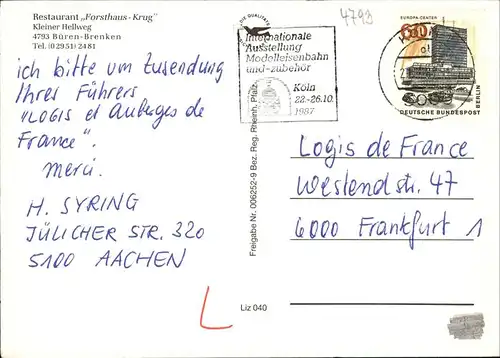 Restaurant „Forsthaus-Krug"
Kleiner Hellweg
4793 Büren-Brenken
Tel. (02951) 2481
ich bitte um Zusendung
Ihres Führers
"LOGIS et Auberges de
France".
Merci.
H. SYRING
JÜLICHER STR. 320
5100 AACHEN
DIE QUALITÄTS
Freigabe Nr. 006252-9 Bez. Reg. Rheinh. Pfalz.
Liz 040
4793
Internationale
Ausstellung
Modelleisenbahn
und-zubehör
Köln
22.-26.10.
1987
EUROPA-CENTER
DEUTSCHE BUNDESPOST
BERLIN
Logis de France
Westendstr. 47
6000 Frankfurt 1
L